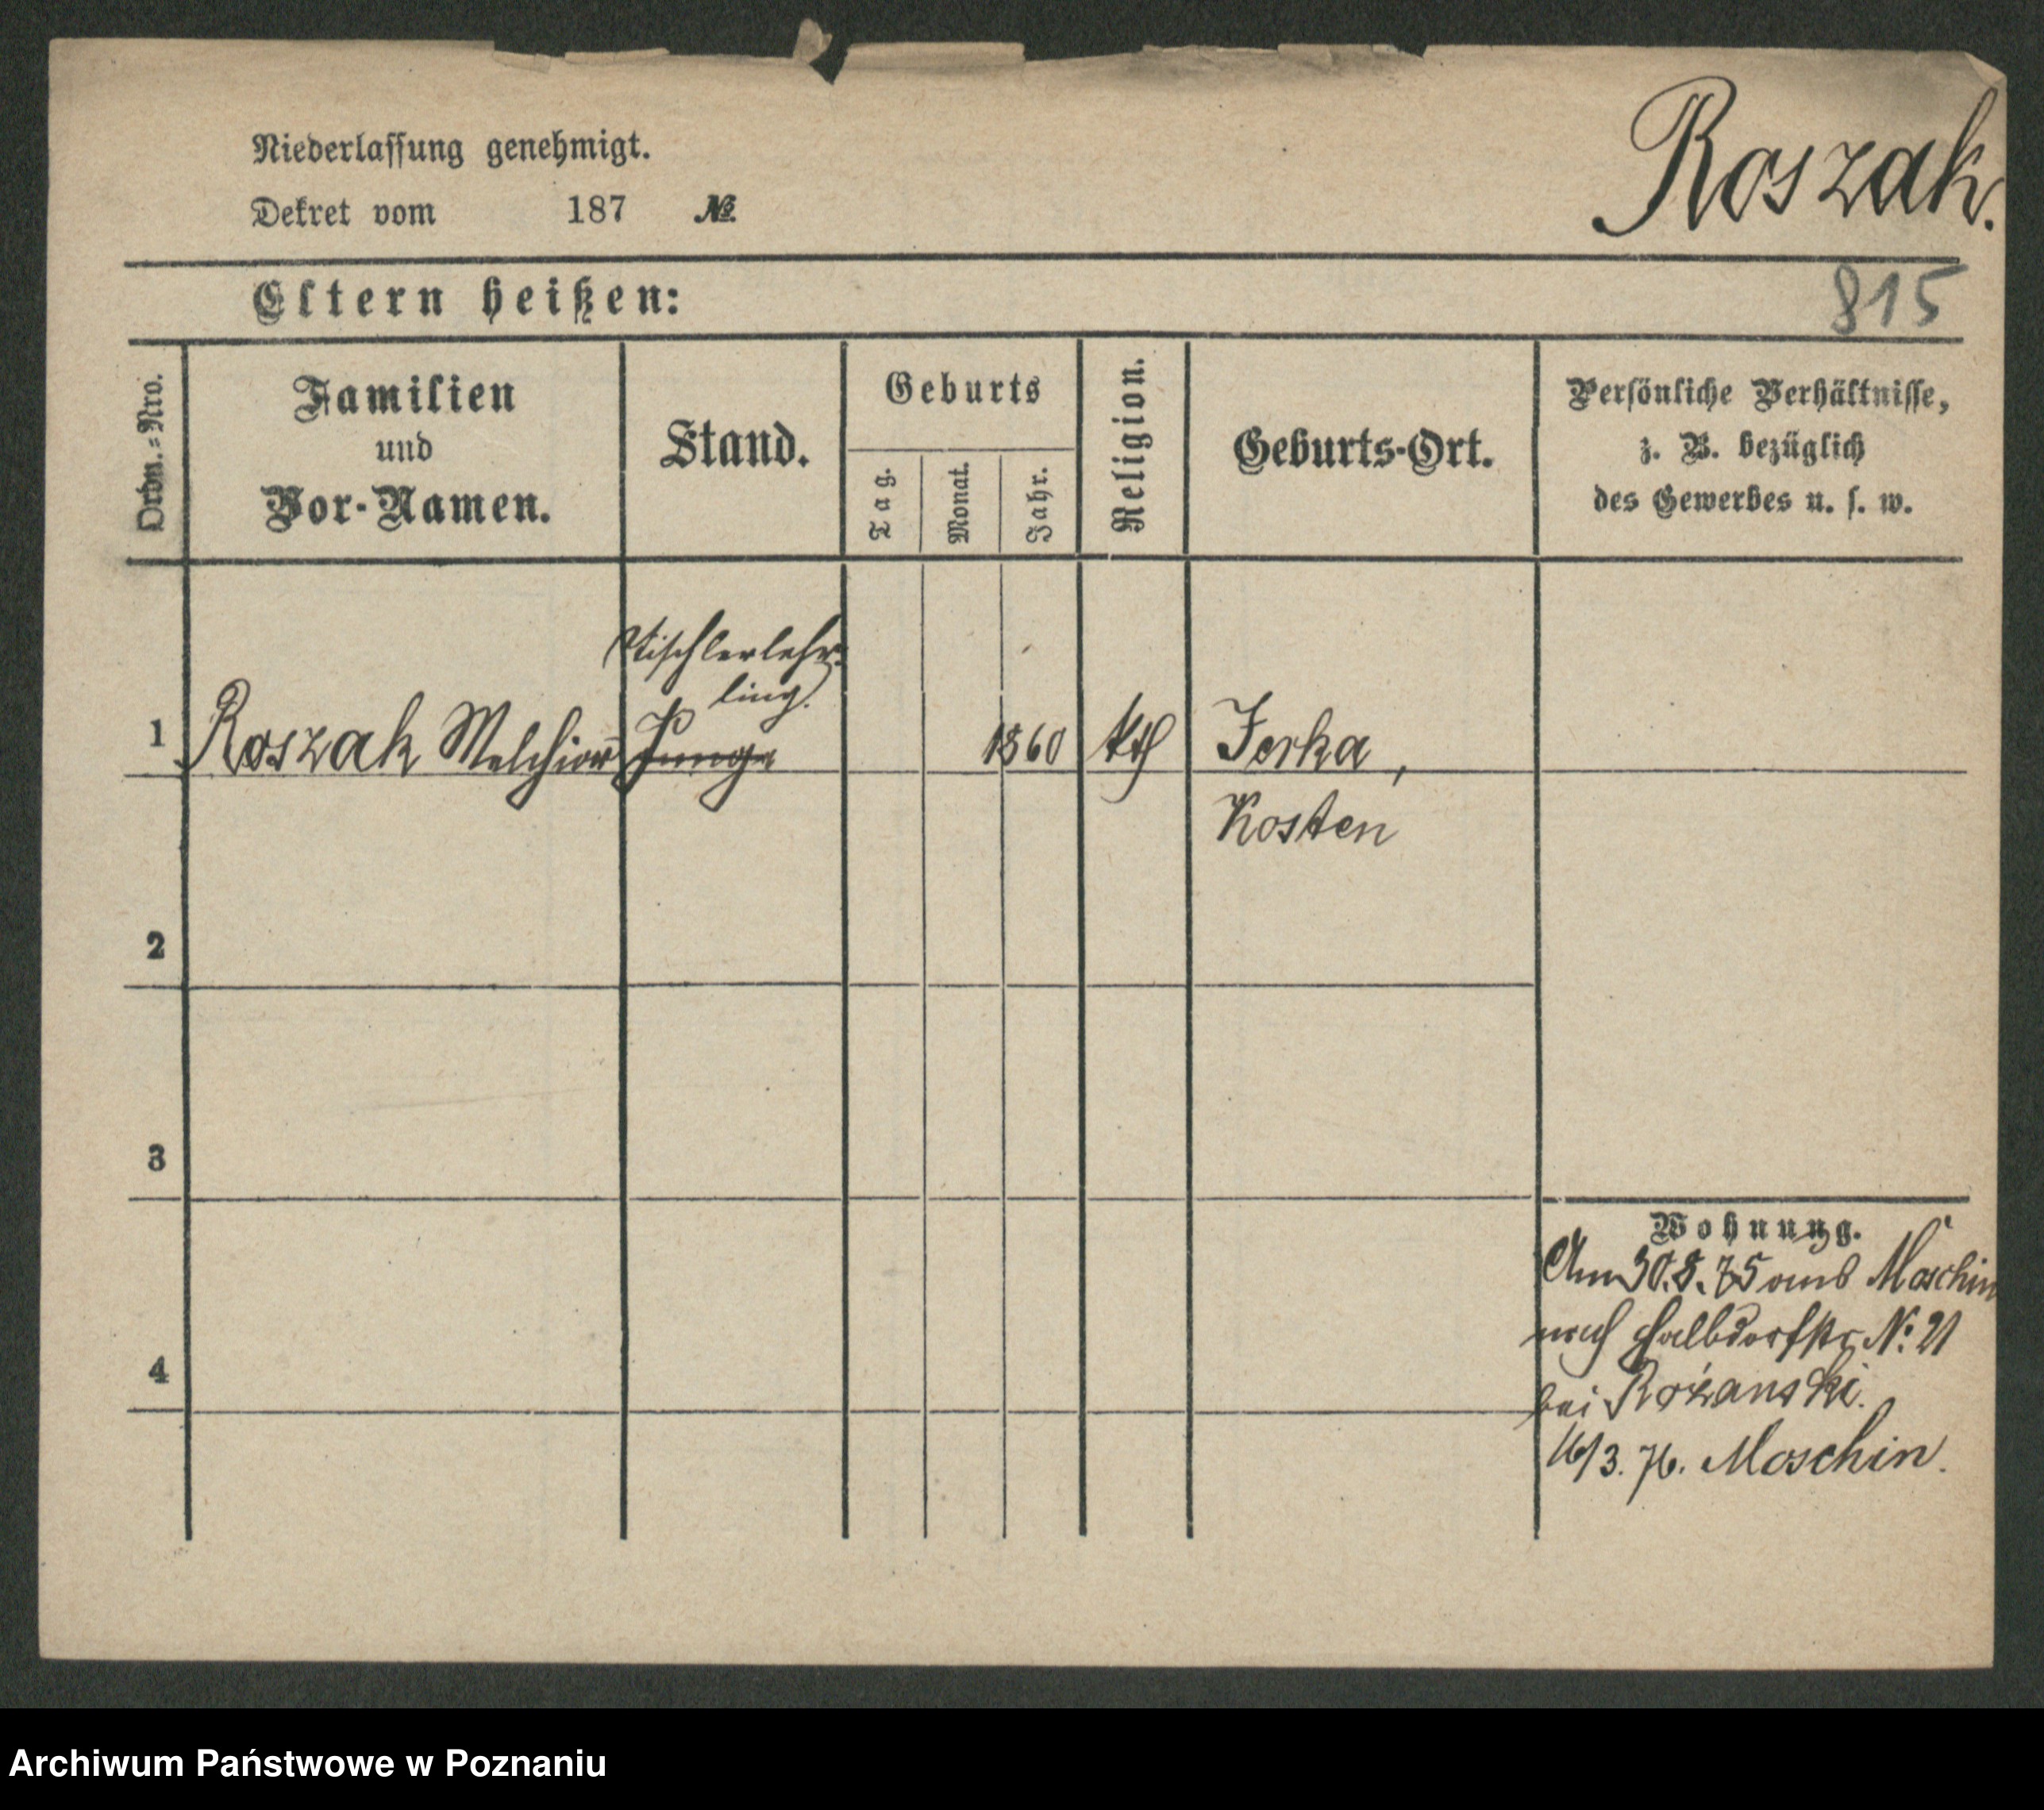 Niederlassung genehmigt.
Roszak.
Dekret vom 187 №
Eltern heißen:
815
Ordn.=Nro.
Familien
und
Vor-Namen.
Stand.
Geburts
Tag.
Monat.
Jahr.
Religion.
Geburts-Ort.
Persönliche Verhältnisse,
z. B. bezüglich
des Gewerbes u. s. w.
Tischlerlehr-
ling.
1 Roszak Melchior Junge 1860 kth Jerka,
Kosten
2
3
4
Wohnung.
Am 30.8.75 aus Moschin
nach Halbdorfstr N: 21
bei Rożanski.
16/3. 76. Moschin.
Archiwum Państwowe w Poznaniu